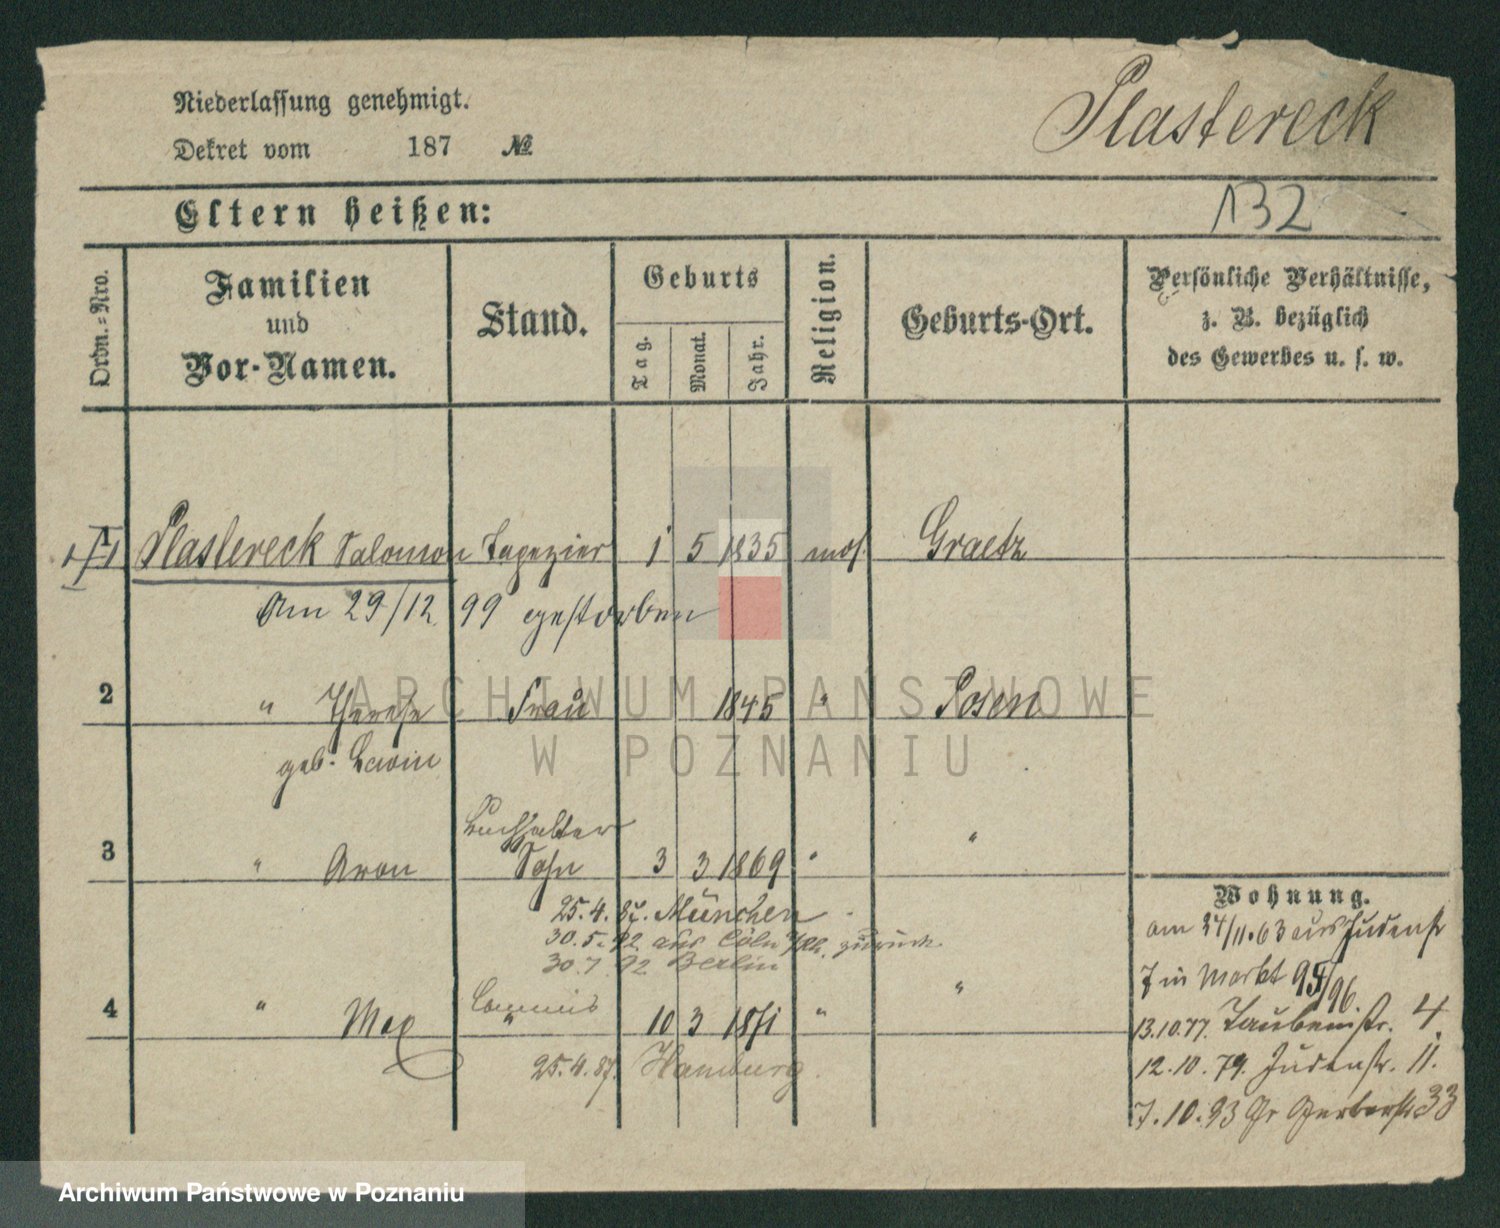 Niederlassung genehmigt.
Dekret vom 187 №
Plastereck
Eltern heißen:
132
Ordn.-Nro.
Familien und Vor-Namen.
Stand.
Geburts
Tag.
Monat.
Jahr.
Religion.
Geburts-Ort.
Persönliche Verhältnisse,
z. B. bezüglich
des Gewerbes u. s. w.
1 Plastereck Salomon Tapezier 1 5 1835 mos. Graetz
Am 29/12 99 gestorben
2 " Therese Frau 1845 " Posen
geb. Lewin
Buchhalter
3 " Aron Sohn 3 3 1869 " "
25.4.87. München
30.5.92 aus Cöln zurück
30.7.92 Berlin
Commis
4 " Max " 10 3 1871 " "
25.4.87. Hamburg.
Wohnung.
am 24/11.63 aus Judenstr
7 in Markt 95/96
13.10.77. Taubenstr. 4.
12.10.79. Judenstr. 11.
7.10.93 Gr Gerberstr 33
ARCHIWUM PAŃSTWOWE
W POZNANIU
Archiwum Państwowe w Poznaniu